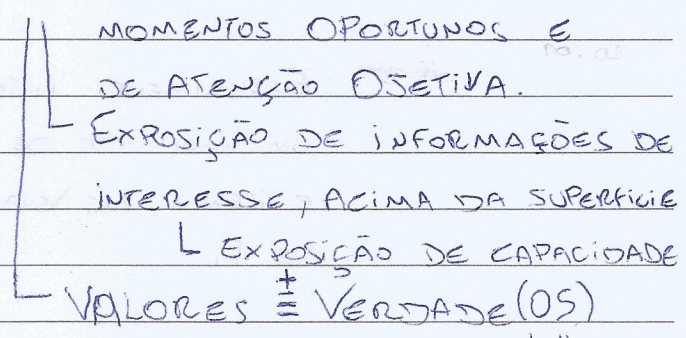 MOMENTOS OPORTUNOS E
DE ATENÇÃO OJETIVA.
EXPOSIÇÃO DE INFORMAÇÕES DE
INTERESSE, ACIMA DA SUPERFICIE
EXPOSIÇÃO DE CAPACIDADE
VALORES ± = VERDADE(OS)